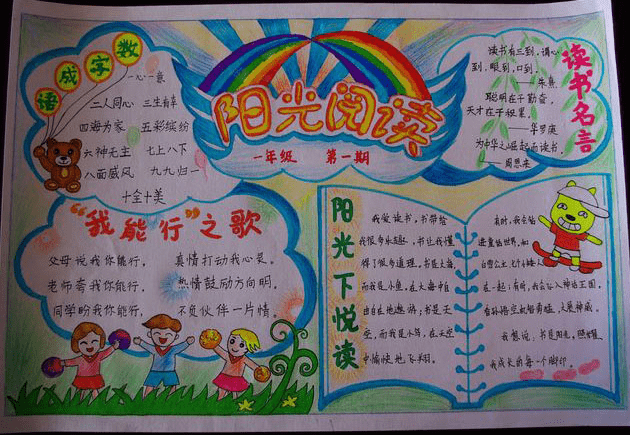 数字成语
一心一意
二人同心 三生有幸
四海为家 五彩缤纷
六神无主 七上八下
八面威风 九九归一
十全十美
阳光阅读
一年级 第一期
读书名言
读书有三到，谓心
到，眼到，口到。
——朱熹
聪明在于勤奋，
天才在于积累。
——华罗庚
为中华之崛起而读书。
——周恩来
“我能行”之歌
父母说我你能行，
真情打动我心灵。
老师夸我你能行，
热情鼓励方向明。
同学盼我你能行，
不负伙伴一片情。
阳光下悦读
我爱读书，书带给
我很多乐趣，书让我懂
得了很多道理。书是大海，
而我是小鱼，在大海中自
由自在地遨游，书是天
空，而我是小鸟，在天空
中愉快地飞翔。
有时，我会钻
进童话世界，和
白雪公主、七个小矮人
在一起；有时，我会钻入神话王国，
看孙悟空
我想说，书是阳光，照耀
我成长的每一个脚印。